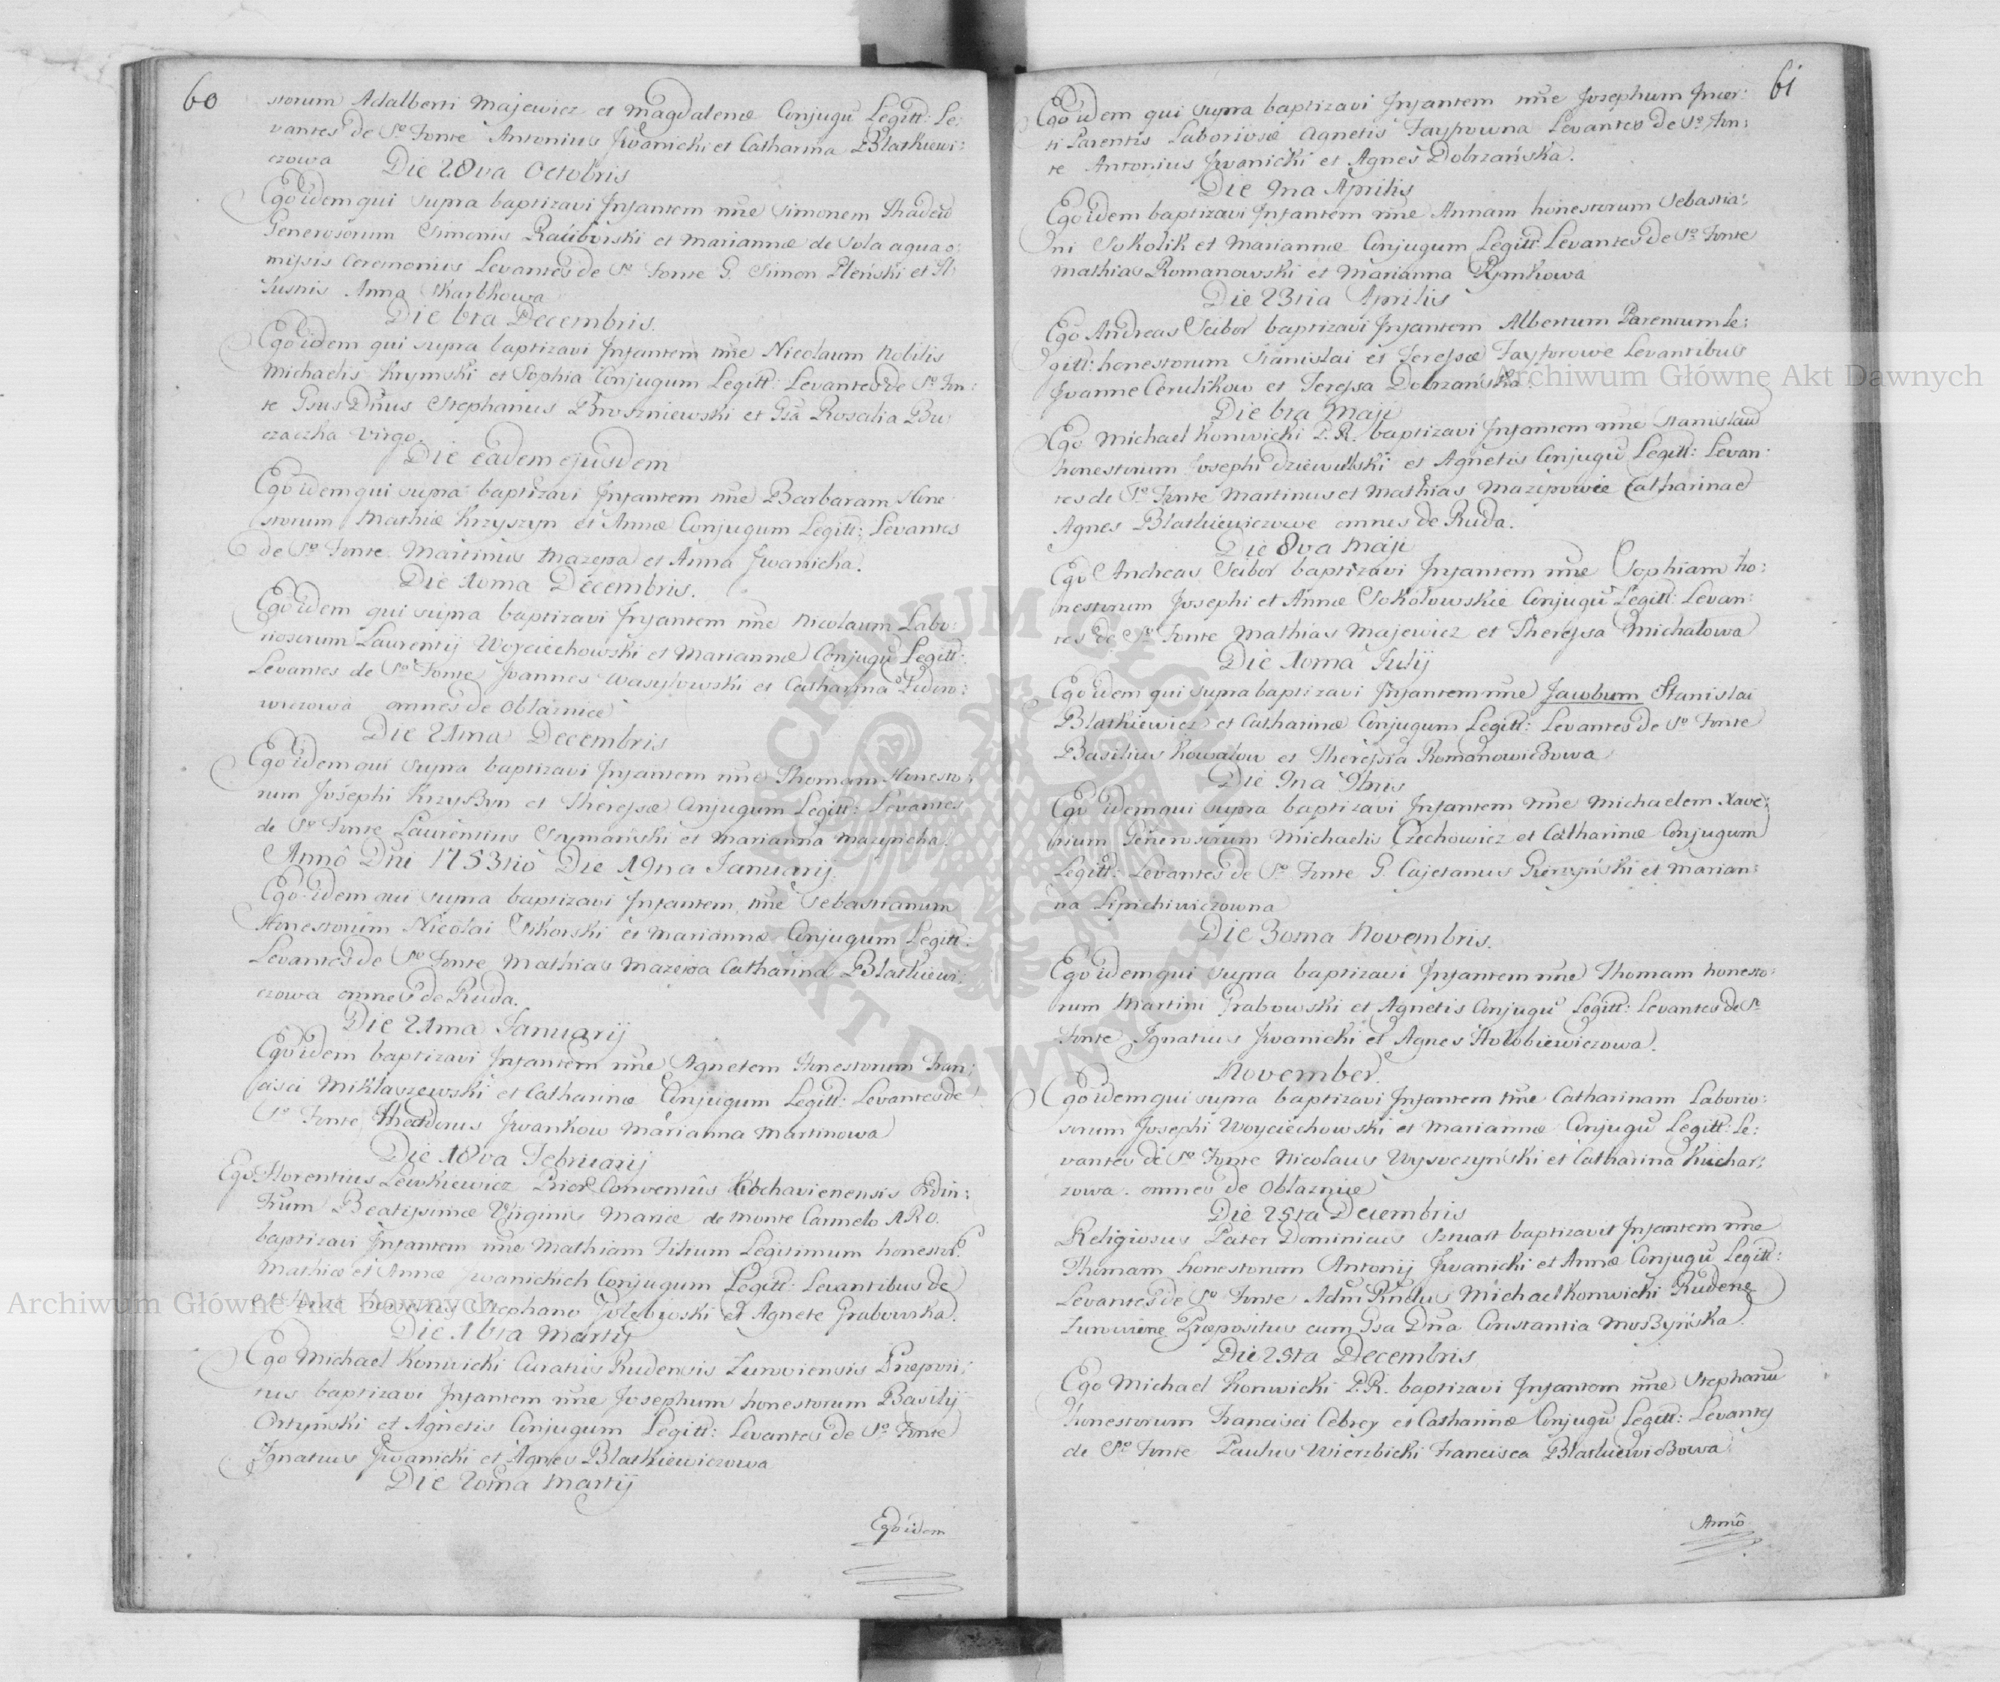 60
storum Adalberti Majewicz et Magdalenæ Conjugũ Legitt: Le:
vantes de S.º Fonte Antonius Jwanicki et Catharina Blatkiewi:
czowa
Die 28va Octobris
Ego idem qui supra baptizavi Jnfantem nñe Simonem Thadeũ
Generosorum Simonis Raciborski et Mariannæ de sola aqua o:
missis Ceremoniis Levantes de S.º Fonte G. Simon Pleński et Jl
lustris Anna Skarbkowa
Die 6ta Decembris.
Ego idem qui supra baptizavi Jnfantem nñe Nicolaum Nobilis
Michaelis Krymski et Sophia Conjugum Legitt: Levantes de S.º Fon:
te Gsus Dñus Stephanus Broszniewski et Gsa Rosalia Bu
czaczka Virgo.
Die eadem ejusdem
Ego idem qui supra baptizavi Jnfantem nñe Barbaram Hone
storum Mathiæ Krzyszyn et Annæ Conjugum Legitt: Levantes
de S.º Fonte Martinus Mazepa et Anna Jwanicka.
Die 10ma Decembris.
Ego idem qui supra baptizavi Jnfantem nñe Nicolaum Labo:
riosorum Laurentij Woyciechowski et Mariannæ Conjugũ Legitt:
Levantes de S.º Fonte Joannes Wasylowski et Catharina
wiczowa omnes de Obłaznica
Die 21ma Decembris
Ego idem qui supra baptizavi Jnfantem nñe Thomam Honesto:
rum Josephi Krzyszyn et Theressæ Conjugum Legitt: Levantes
de S.º Fonte Laurentius Szymański et Marianna Mazypicha.
Annô Dñi 1753tiô Die 19na Januarij.
Ego idem qui supra baptizavi Jnfantem nñe Sebastianum
Honestorum Nicolai Sikorski et Mariannæ Conjugum Legitt:
Levantes de S.º Fonte Mathias Mazepa Catharina Blatkiewi:
czowa omnes de Ruda.
Die 21ma Januarij
Ego idem baptizavi Jnfantem nñe Agnetem Honestorum Fran:
cisci Mikłaszewski et Catharinæ Conjugum Legitt: Levantes de
S.º Fonte Theodorus Jwanków Marianna Martinowa
Die 18va Februarij
Ego Florentius Lewkiewicz Prior Conventûs Ordin:
Frum Beatissimæ Virginis Mariæ de Monte Carmelo A R O.
baptizavi Jnfantem nñe Mathiam Filium Legitimum honestor.
Mathiæ et Annæ Jwanickich Conjugum Legitt: Levantibus de
S.º Fonte honestis Stephano Gołębowski et Agnete Grabowska.
Die 16ta Martij
Ego Michael Konwicki Curatus Rudensis Zurowiensis Præposi:
tus baptizavi Jnfantem nñe Josephum honestorum Basilij
Ortyński et Agnetis Conjugum Legitt: Levantes de S.º Fonte
Jgnatius Jwanicki et Agnes Blatkiewiczowa
Die 20ma Martij
Ego idem
61
Ego idem qui supra baptizavi Jnfantem nñe Josephum Jncer:
ti Parentis Laboriosæ Agnetis Fayfrowna Levantes de S.º Fon:
te Antonius Jwanicki et Agnes Dobrzańska.
Die 9na Aprilis
Ego idem baptizavi Jnfantem nñe Annam honestorum Sebastia:
ni Sokolik et Mariannæ Conjugum Legitt: Levantes de S.º Fonte
Mathias Romanowski et Marianna Rymkowa
Die 23tia Aprilis
Ego Andreas Scibor baptizavi Jnfantem Albertum Parentum Le:
gitt: honestorum Stanislai et Teressæ Fayfrowe Levantibus
Joanne Cerulikow et Teressa Dobrzańska.
Die 6ta Maji
Ego Michael Konwicki P. R. baptizavi Jnfantem nñe Stanislaũ
honestorum Josephi Dziewulski et Agnetis Conjugũ Legitt: Levan:
tes de S.º Fonte Martinus et Mathias Mazepowie Catharina et
Agnes Blatkiewiczowe omnes de Ruda.
Die 8va Maji
Ego Andreas Scibor baptizavi Jnfantem nñe Sophiam ho:
nestorum Josephi et Annæ Sokołowskie Conjugũ Legitt: Levan:
tes de S.º Fonte Mathias Majewicz et Theressa Michałowa
Die 10ma Julij
Ego idem qui supra baptizavi Jnfantem nñe Jacobum Stanislai
Blatkiewicz et Catharinæ Conjugum Legitt: Levantes de S.º Fonte
Basilius Kowalow et Theressia Romanowiczowa
Die 9na 9bris
Ego idem qui supra baptizavi Jnfantem nñe Michaelem Xave:
rium Generosorum Michaelis Czechowicz et Catharinæ Conjugum
Legitt: Levantes de S.º Fonte G. Cajetanus et Marian:
na Lipichiwiczowna
Die 30ma Novembris.
Ego idem qui supra baptizavi Jnfantem nñe Thomam honesto:
rum Martini Grabowski et Agnetis Conjugũ Legitt: Levantes de S.º
Fonte Jgnatius Jwanicki et Agnes Hołobiewiczowa.
November.
Ego idem qui supra baptizavi Jnfantem nñe Catharinam Laborio:
sorum Josephi Woyciechowski et Mariannæ Conjugũ Legitt: Le:
vantes de S.º Fonte Nicolaus Wysoczyński et Catharina Kuchar:
zowa. omnes de Obłaznice
Die 25ta Decembris
Religiosus Pater Dominicus Sztuart baptizavit Jnfantem nñe
Thomam honestorum Antonij Jwanicki et Annæ Conjugũ Legitt:
Levantes de S.º Fonte Adm Rndus Michael Konwicki Ruden
Zurowien Præpositus cum Gsa Dña Constantia Moszyńska.
Die 25ta Decembris
Ego Michael Konwicki P. R. baptizavi Jnfantem nñe Stephanũ
honestorum Francisci Cebrey et Catharinæ Conjugũ Legitt: Levantes
de S.º Fonte Paulus Wierzbicki Francisca Blatkiewiczowa
Annô
Archiwum Główne Akt Dawnych
Archiwum Główne Akt Dawnych
ARCHIWUM GŁÓWNE AKT DAWNYCH